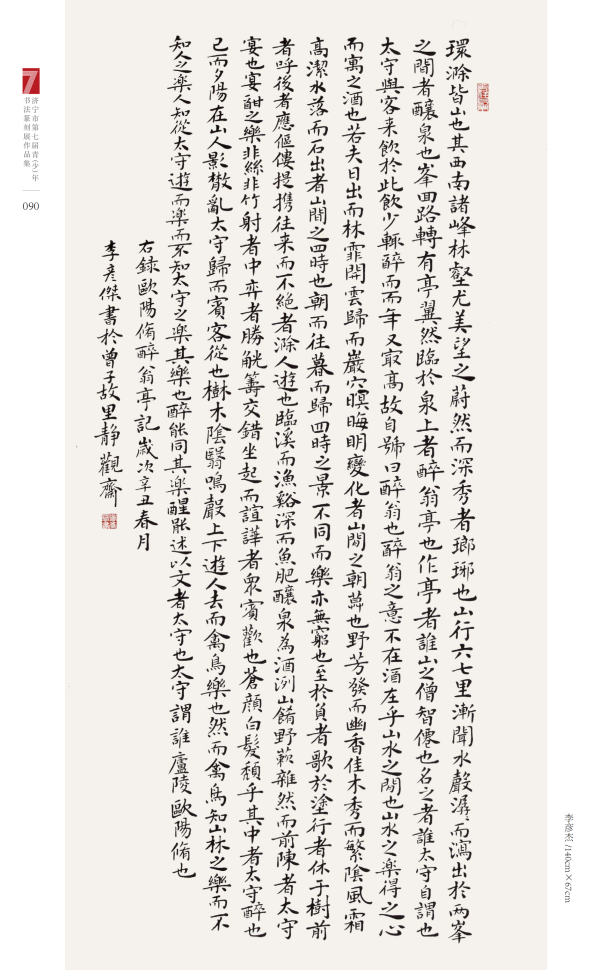 環滁皆山也其西南諸峰林壑尤美望之蔚然而深秀者瑯琊也山行六七里漸聞水聲潺〻而瀉出於两峯
之間者釀泉也峯回路轉有亭翼然臨於泉上者醉翁亭也作亭者誰山之僧智僊也名之者誰太守自謂也
太守與客来飲於此飲少輒醉而而年又㝡高故自號曰醉翁也醉翁之意不在酒在乎山水之間也山水之樂得之心
而寓之酒也若夫日出而林霏開雲歸而巖穴暝晦明變化者山間之朝暮也野芳發而幽香佳木秀而繁陰風霜
高潔水落而石出者山間之四時也朝而往暮而歸四時之景不同而樂亦無窮也至於負者歌於塗行者休于樹前
者呼後者應傴僂提携往来而不絕者滁人遊也臨溪而漁谿深而魚肥釀泉為酒洌山餚野蔌雜然而前陳者太守
宴也宴酣之樂非絲非竹射者中弈者勝觥籌交錯坐起而諠譁者衆賓歡也蒼顏白髮頹乎其中者太守醉也
已而夕陽在山人影散亂太守歸而賓客從也樹木陰翳鳴聲上下遊人去而禽鳥樂也然而禽鳥知山林之樂而不
知人之楽人知從太守遊而楽而不知太守之楽其樂也醉能同其楽醒能述以文者太守也太守謂誰廬陵歐陽脩也
右録歐陽脩醉翁亭記歲次辛丑春月
李彦傑書於曾子故里静觀齋
7
济宁市第七届青(少)年
书法篆刻展作品集
090
李彦杰 /140cm×67cm